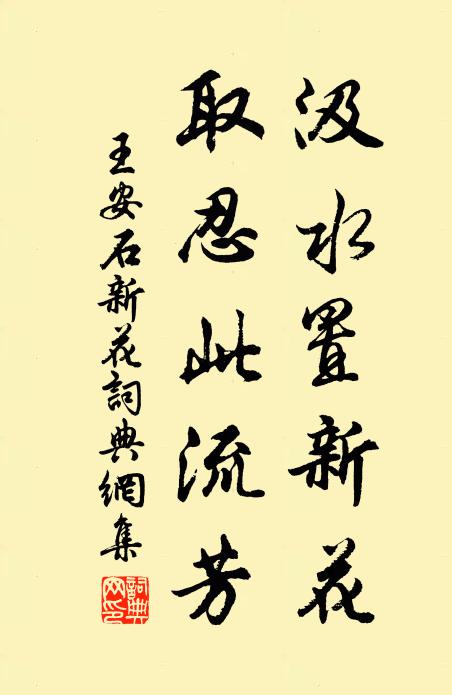 汲水置新花
取忍此流芳
王安石新花詞典網集
詞典網印